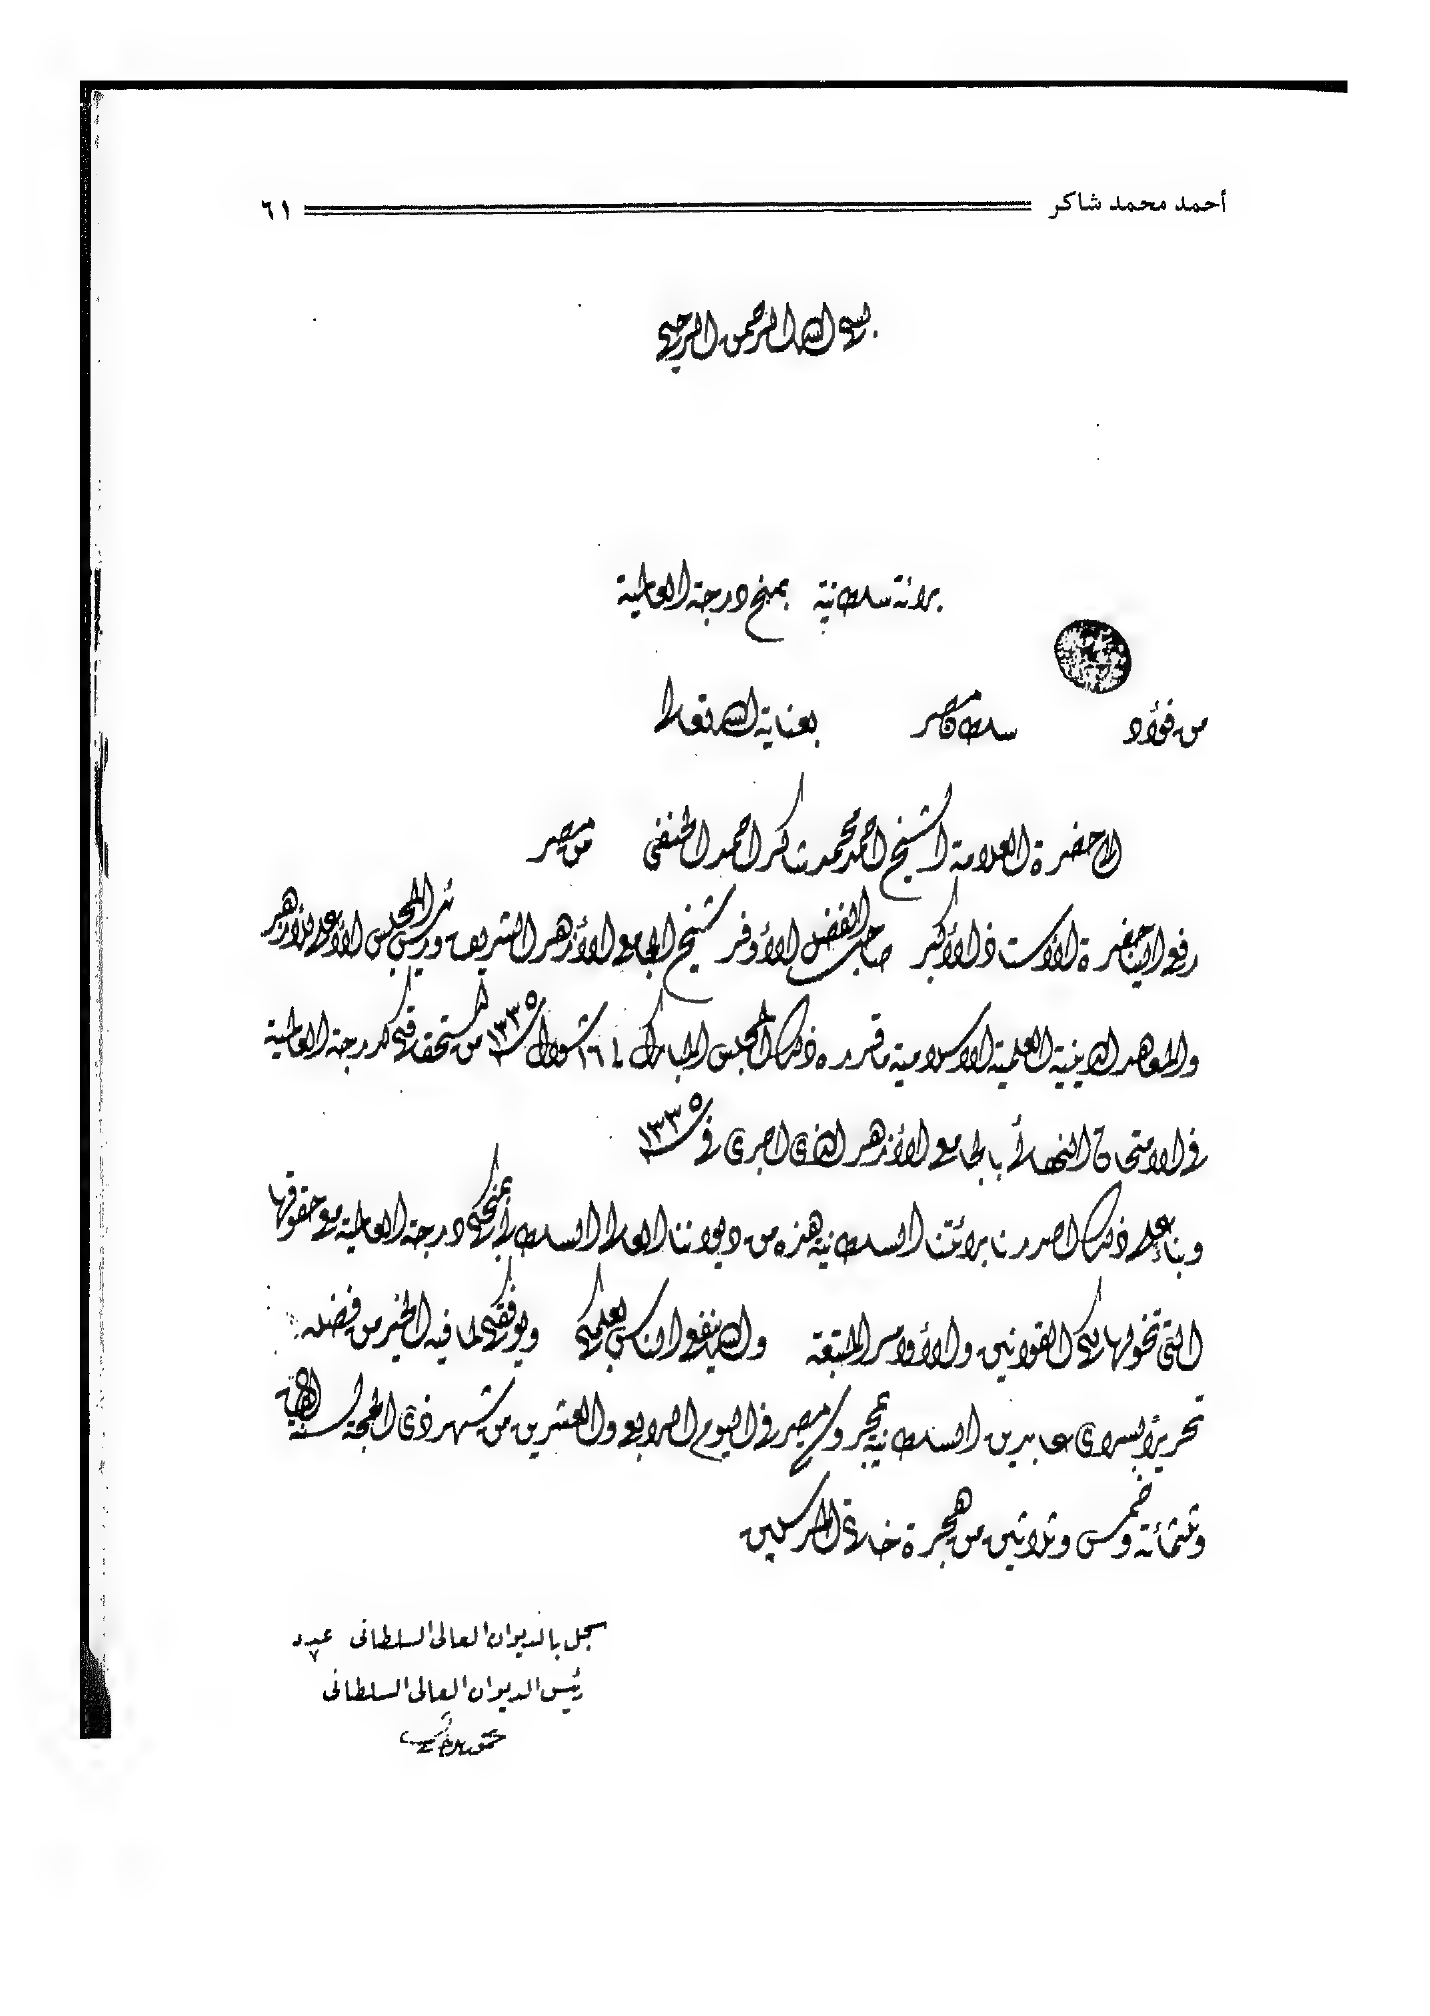 أحمد محمد شاكر ٦١
بسم الله الرحمن الرحيم
براءة سلطانية بمنح درجة العالمية
من فؤاد سلطان مصر بعناية الله تعالى
الى حضرة العلامة الشيخ احمد محمد شاكر احمد الحنفى من مصر
رفع الينا حضرة الأستاذ الأكبر صاحب الفضل الأوفر شيخ الجامع الأزهر الشريف ورئيس المجلس الأعلى للأزهر
والمعاهد الدينية العلمية الاسلامية ما قرره ذلك المجلس المبارك فى ١٦ شوال سنة ١٣٣٥ من استحقاقكم درجة العالمية
فى الامتحان النهائى بالجامع الأزهر الذى اجرى فى سنة ١٣٣٥
وبناء على ذلك اصدرنا براءتنا السلطانية هذه من ديواننا العالى السلطانى بمنحكم درجة العالمية مع حقوقها
التى تخولها لكم القوانين والأوامر المتبعة والله ينفع الناس بعلمكم ويوفقكم لما فيه الخير من فضله
تحريرا بسراى عابدين السلطانية بمحروسة مصر فى اليوم الرابع والعشرين من شهر ذى الحجة لسنة الف
وثلثمائة وخمس وثلاثين من هجرة خاتم المرسلين
سجل بالديوان العالى السلطانى عدد ٧
رئيس الديوان العالى السلطانى